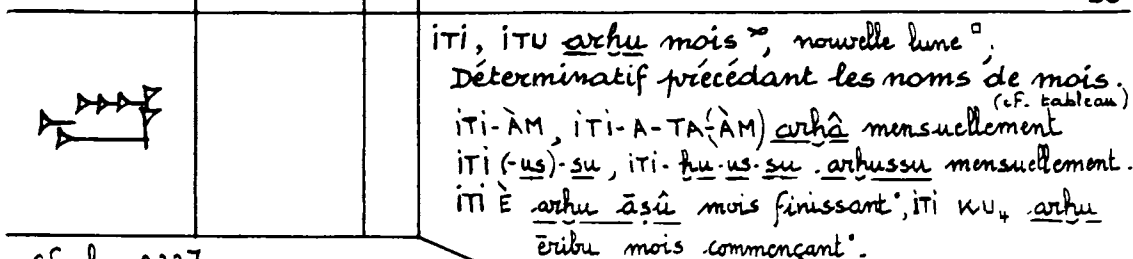 iTi, iTU arḫu mois ∞, nouvelle lune ▫,
Déterminatif précédant les noms de mois.
(cf. tableau)
iTi-ÀM, iTi-A-TA(-ÀM) arḫâ mensuellement
iTi (-us)-su, iTi-ḫu-us-su arḫussu mensuellement.
iTi È arḫu āṣû mois finissant°, iTi KU₄ arḫu
ēribu mois commençant°.